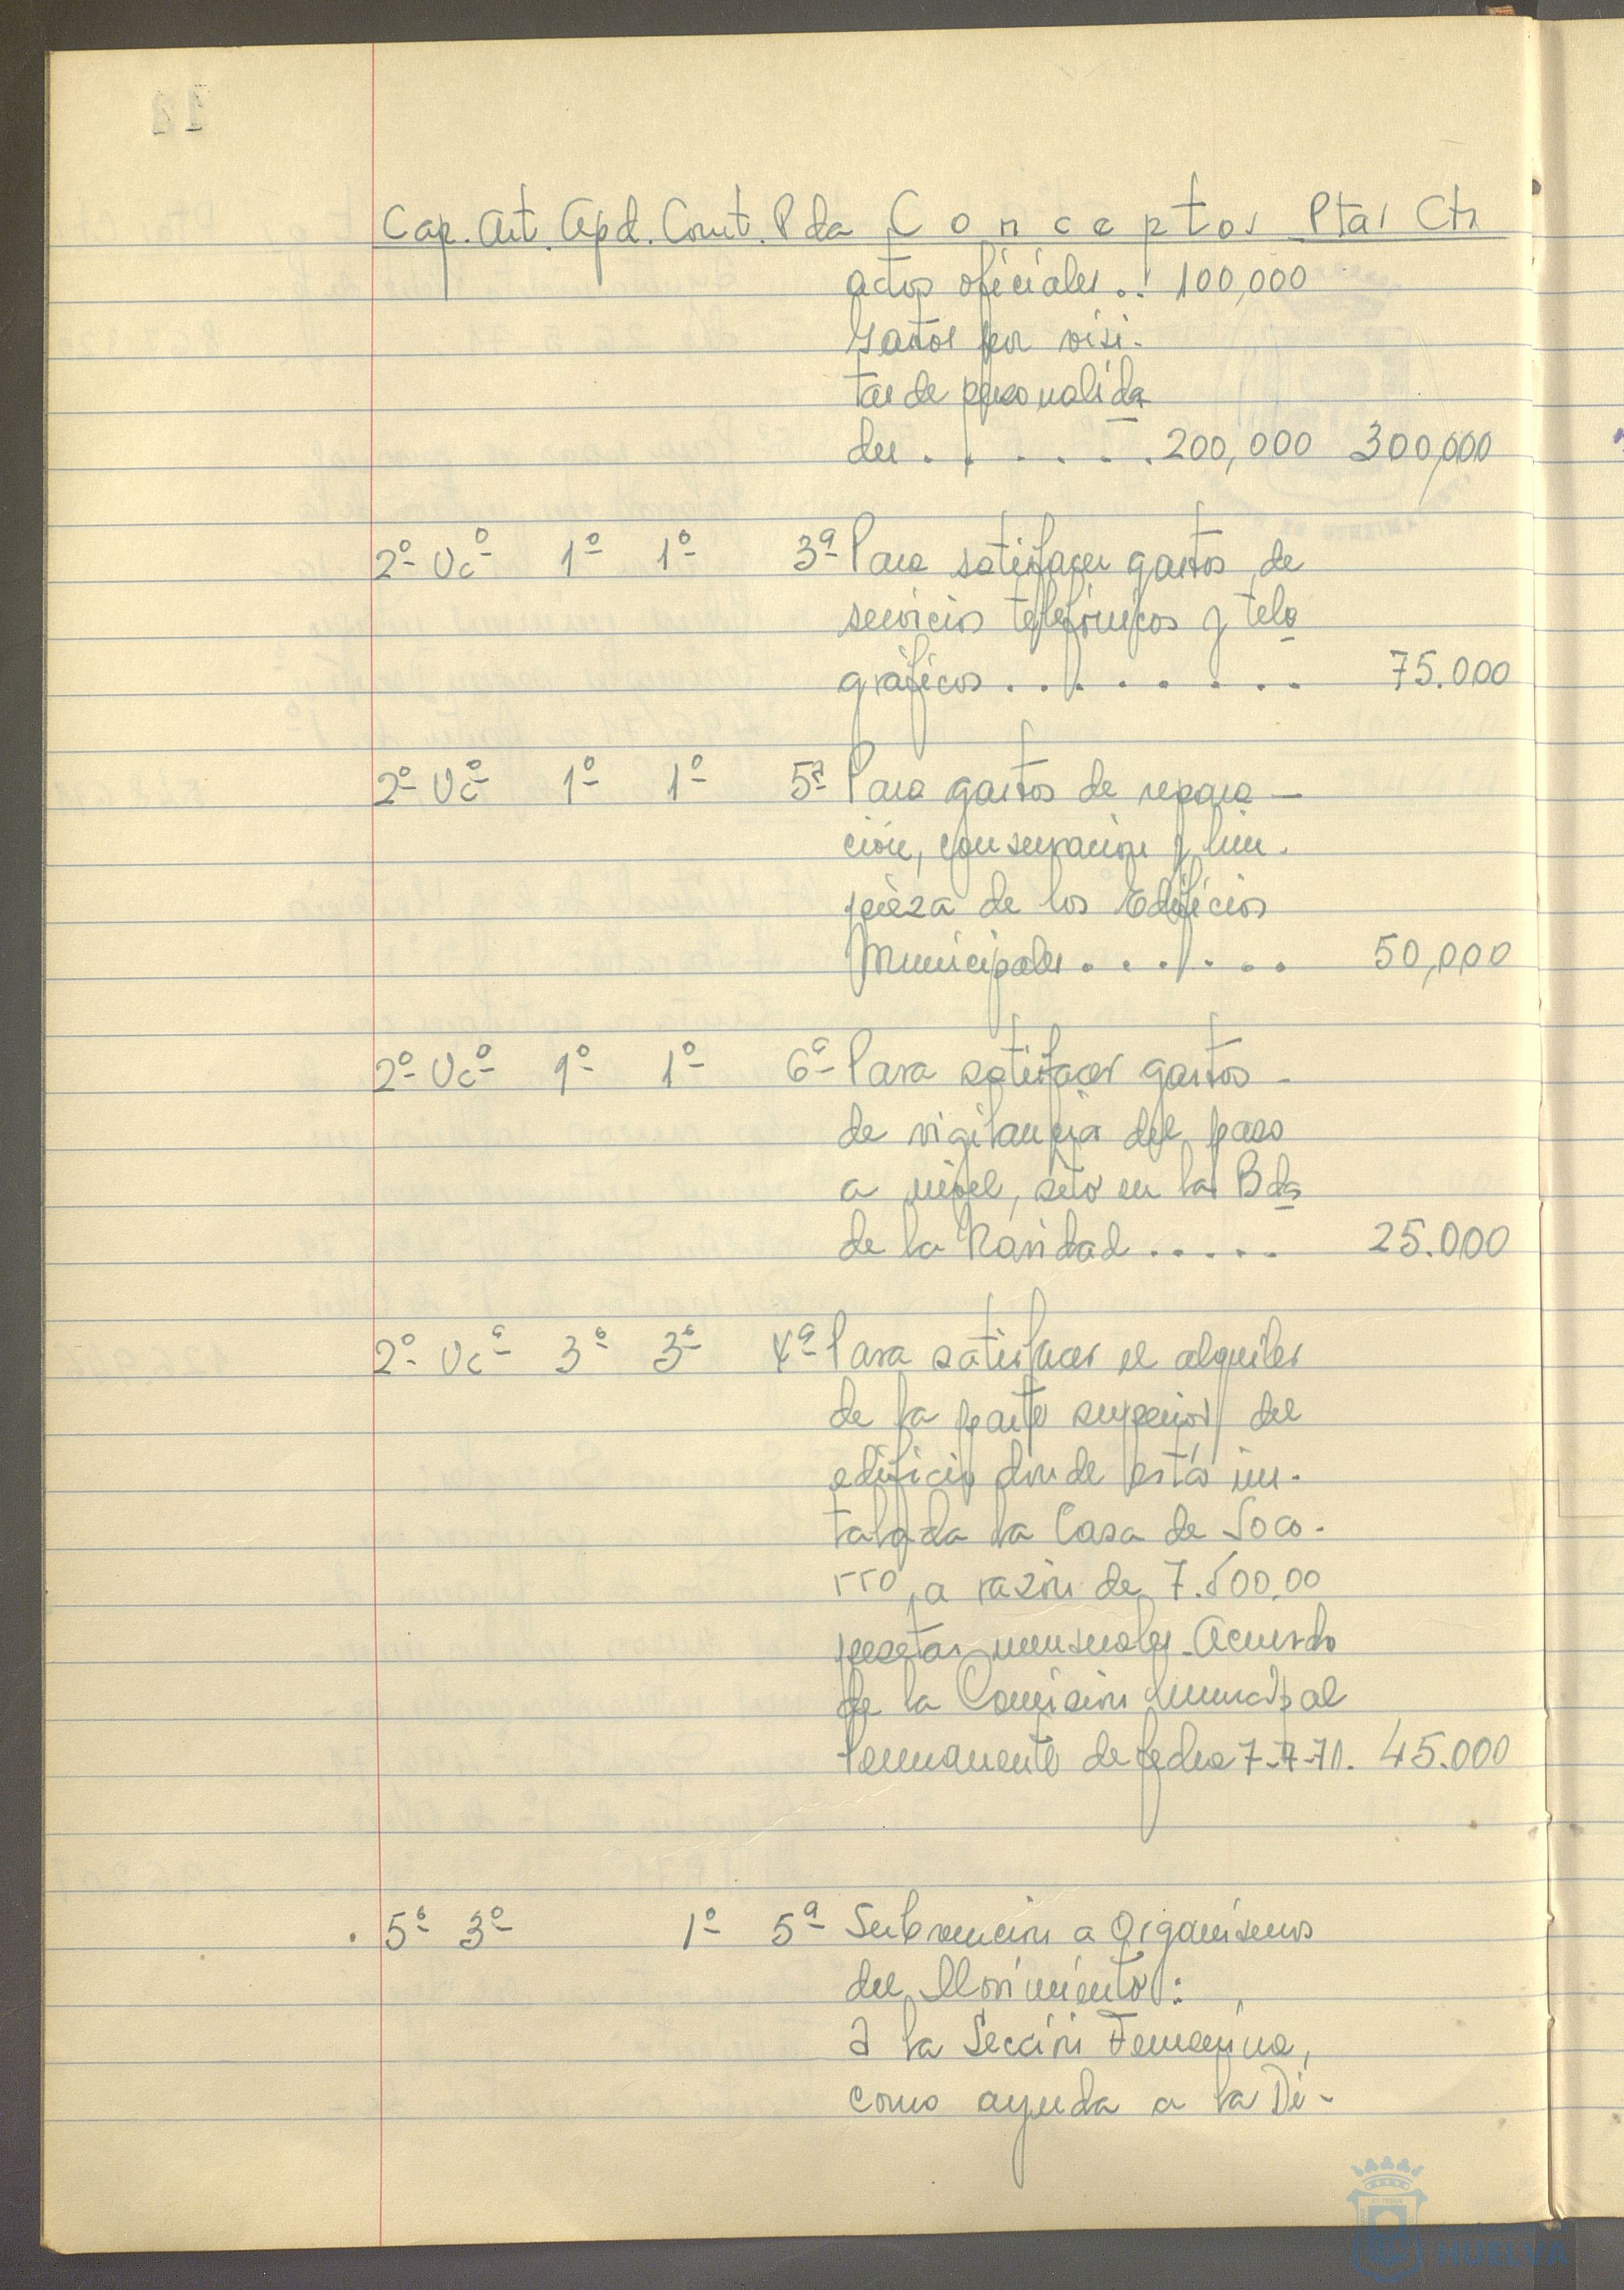 Cap. Art. Apd. Cont. Pda Conceptos Ptas Cts
actos oficiales.. 100,000
Gastos por visi-
tas de personalida
des . . . . . . 200,000 300,000
2º Uc.º 1º 1º 3ª Para satisfacer gastos de
servicios telefónicos y tele
gráficos . . . . . . . . . 75.000
2º Uc.º 1º 1º 5ª Para gastos de repara-
ción, conservación y lim-
pieza de los Edificios
Municipales . . . . . . . 50,000
2º Uc.º 1º 1º 6ª Para satisfacer gastos-
de vigilancia del paso
a nivel, sito en la Bda
de la Navidad . . . . . 25.000
2º Uc.º 3º 3º 4ª Para satisfacer el alquiler
de la parte superior del
edificio donde está ins-
talada la Casa de Soco-
rro, a razón de 7.500,00
pesetas mensuales. Acuerdo
de la Comisión Municipal
Permanente de fecha 7-7-71. 45.000
5º 3º 1º 5ª Subvención a Organismos
del Movimiento:
A la Sección Femenina,
como ayuda a la Di-
HUELVA